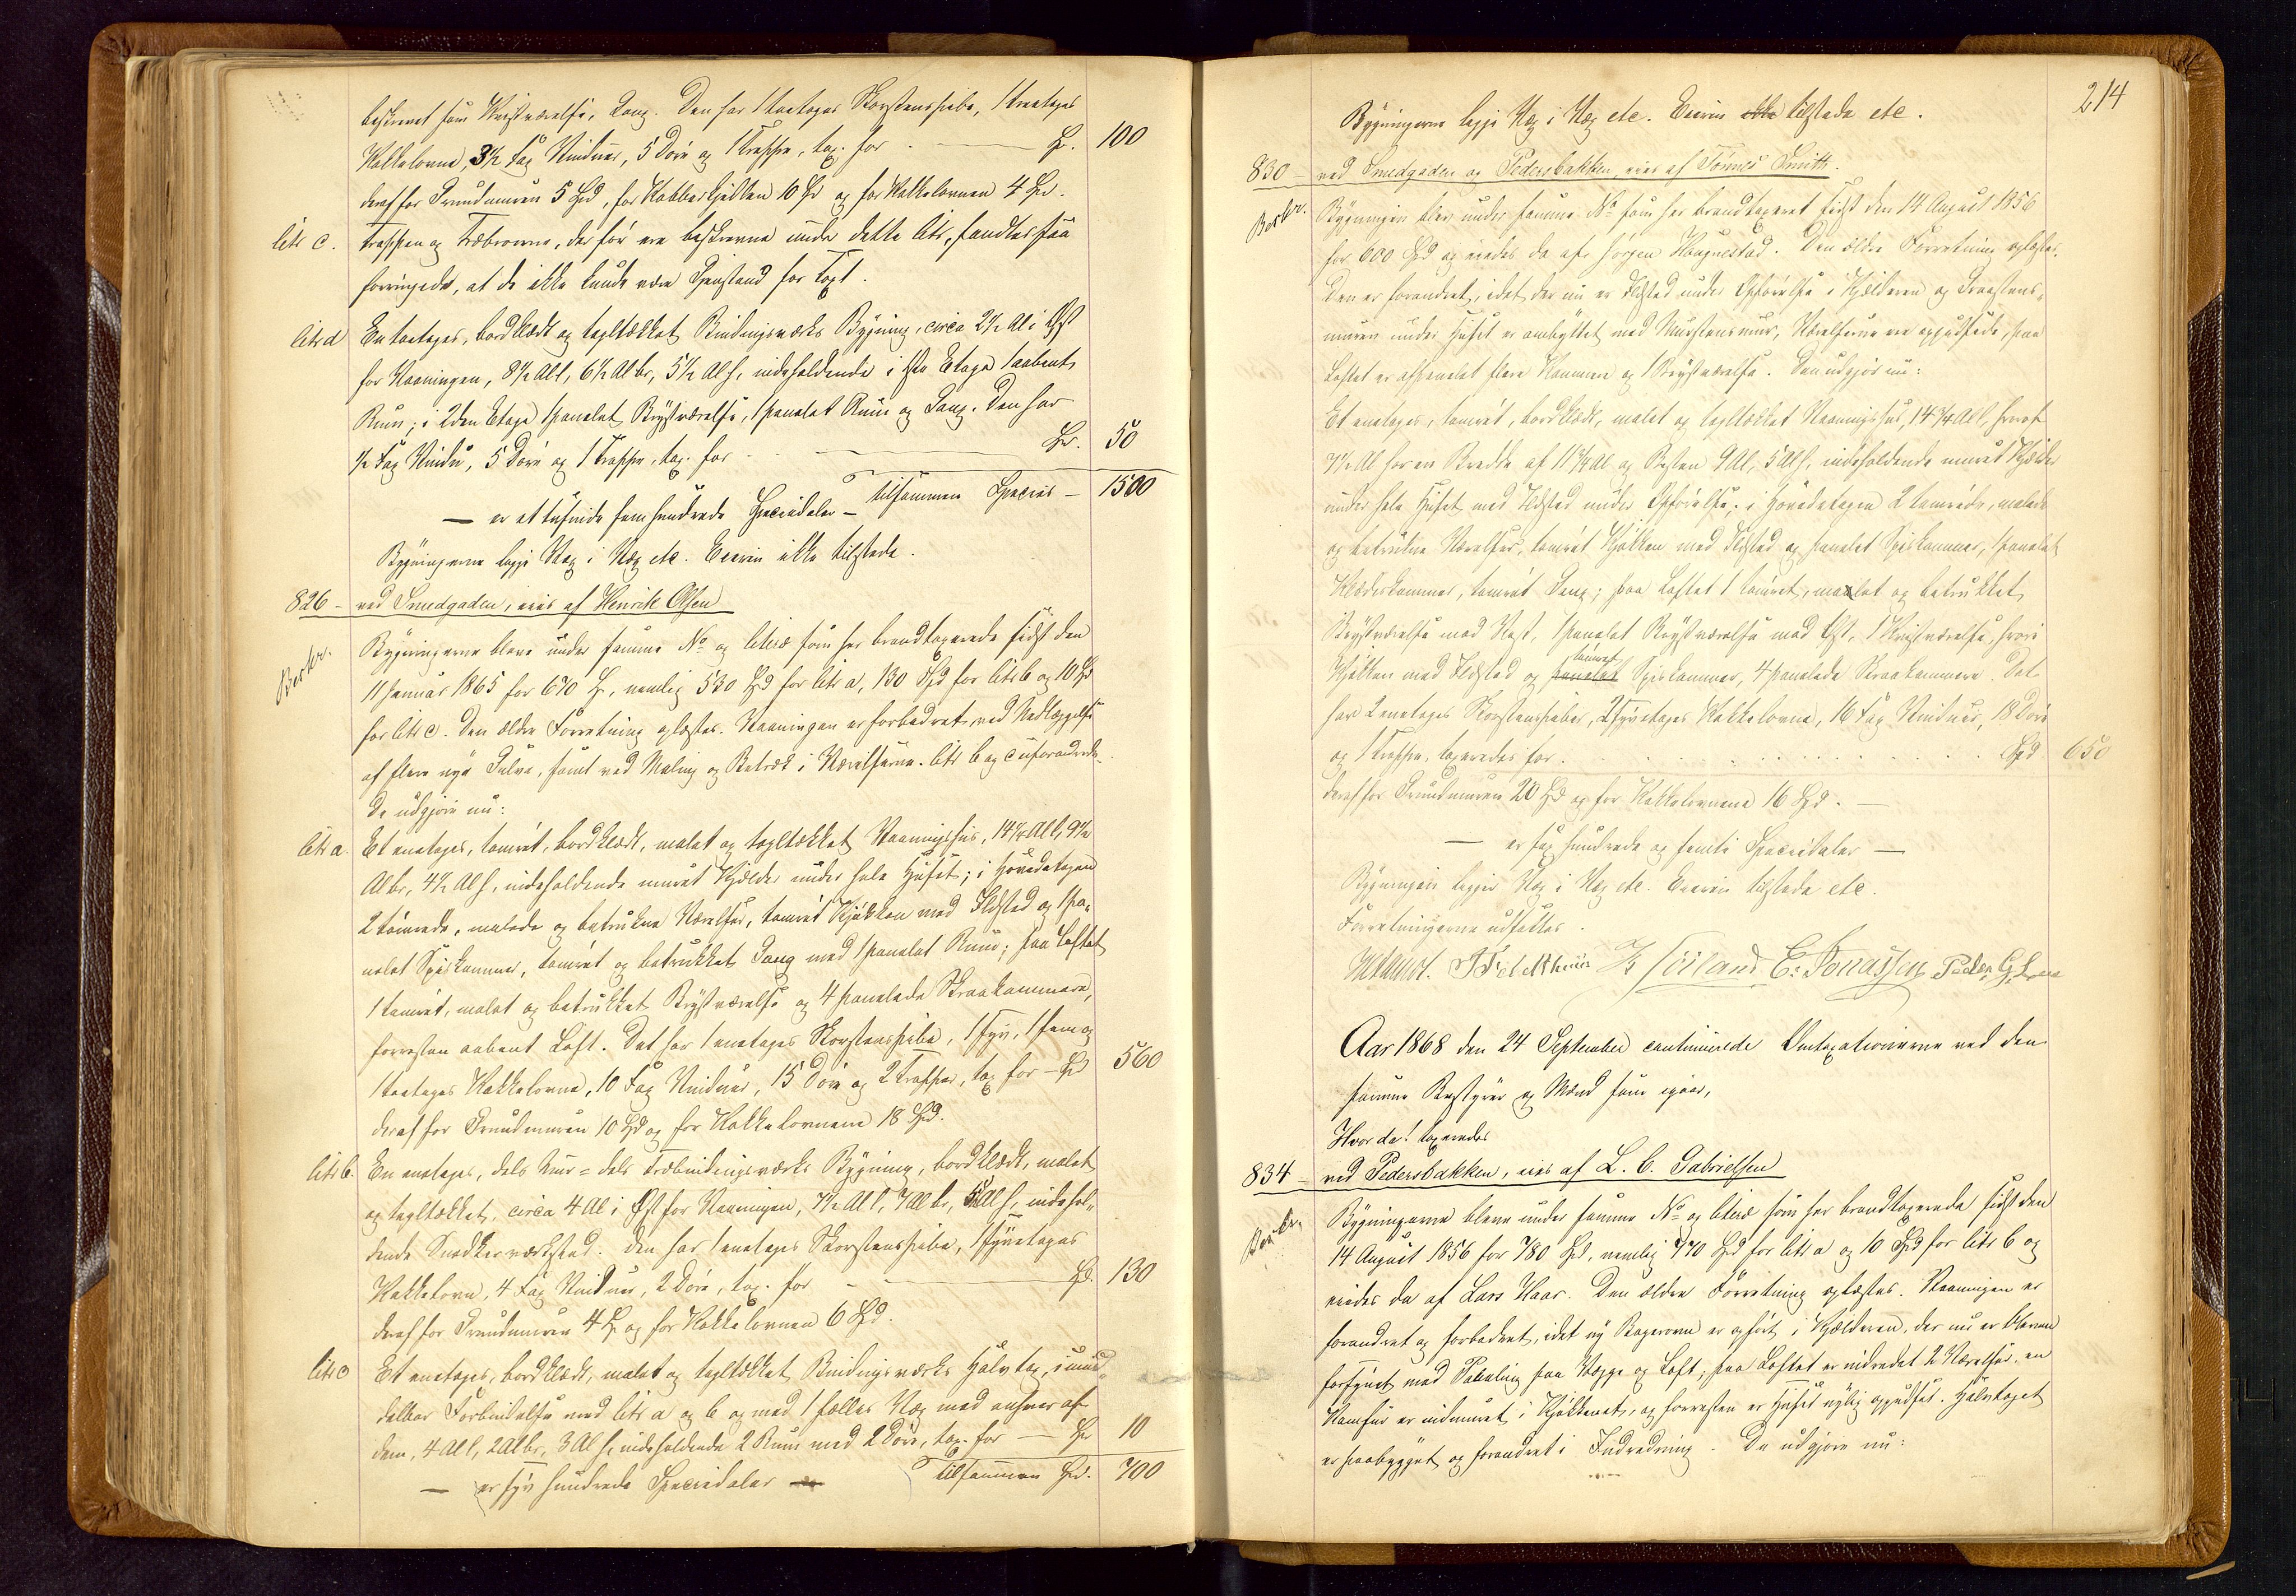 beskrevet som Kvistværelse, Gang. Den har 1 toetages Skorstenspibe, 1 treetages
Kakkelovne, 3½ Fag Vinduer, 5 Döre og 1 Trappe, tax. for - Spd. 100
deraf for Grundmuren 5 Spd, for Kobberkjedlen 10 Spd og for Kakkelovnen 4 Spd.
litr c. Trappen og Træbroerne, der för ere beskrevne under dette litr, fandtes saa
forringede, at de ikke kunde være Gjenstand for Taxt.
litr d En toetages, bordklædt og tegltækket Bindingsværks Bygning, circa 2½ Al i Öst
for Vaaningen, 8½ Al l, 6½ Al br, 5½ Al h, indeholdende i 1ste Etage 1 aabent
Rum; i 2den Etage 1 panelet Brystværelse, 1 panelet Rum og Gang. Den har
½ Fag Vindu, 5 Döre og 1 Trappe, tax. for - Spd. 50
Tilsammen Species - 1500
— er et tusinde fem hundrede Speciedaler —
Bygningerne ligge Væg i Væg etc. Eieren ikke tilstede.
826 - ved Smedgaden, eies af Henrik Olsen
Beskr. Bygningerne bleve under samme No og literæ som her brandtaxerede sidst den
11 Januar 1865 for 670 Spd, nemlig 530 Spd for litr a, 130 Spd for litr b og 10 Spd
for litr c. Den ældre Forretning oplæstes. Vaaningen er forbedret ved Nedlæggelse
af flere nye Gulve, samt ved Maling og Betræk i Værelserne. litr b og c uforandrede.
De udgjöre nu:
litr a. Et enetages, tömret, bordklædt, malet og tegltækket Vaaningshus, 14¼ Al l, 9½
Al br, 4½ Al h, indeholdende muret Kjelder under hele Huset; i Hovedetagen
2 tömrede, malede og betrukne Værelser, tömret Kjökken med Ildsted og 1 pa-
nelet Spiskammer, tömret og betrukket Gang med 1 panelet Rum; paa Loftet
1 tömret, malet og betrukket Brystværelse og 4 panelede Skraakammere,
forresten aabent Loft. Det har 1 enetages Skorstenspibe, 1 fyr, 1 fem og
1 toetages Kakkelovne, 10 Fag Vinduer, 15 Döre og 2 Trapper, tax for - Spd 560
deraf for Grundmuren 10 Spd og for Kakkelovnene 18 Spd.
litr b. En enetages, dels Mur- dels Træbindingsværks Bygning, bordklædt, malet
og tegltækket, circa 4 Al i Öst for Vaaningen, 7½ Al l, 7 Al br, 5 Al h, indehol-
dende Snedkerværksted. Den har 1 enetages Skorstenspibe, 1 fyretages
Kakkelovn, 4 Fag Vinduer, 2 Döre, tax. for - Spd. 130
deraf for Grundmuren 4 Spd og for Kakkelovnen 6 Spd.
litr c Et enetages, bordklædt, malet og tegltækket Bindingsværks Halvtag, i umid-
delbar Forbindelse med litr a og b og med 1 fælles Væg med enhver af
dem, 4 Al l, 2 Al br, 3 Al h, indeholdende 2 Rum med 2 Döre, tax. for — Spd 10
Tilsammen Spd. 700
— er syv hundrede Speciedaler —
214
Bygningerne ligge Væg i Væg etc. Eieren ikke tilstede etc.
830 - ved Smedgaden og Pedersbakken, eies af Tönnes Smith.
Beskr. Bygningen blev under samme No som her brandtaxeret sidst den 14 August 1856
for 600 Spd og eiedes da af Jörgen Haugnestad. Den ældre Forretning oplæstes.
Den er forandret, idet der nu er Ildsted under Opförelse i Kjælderen og Graastens-
muren under Huset er ombyttet med Murstensmur, Værelserne ere oppudsede, paa
Loftet er afpanelet flere Kammere og 1 Brystværelse. Den udgjör nu:
Et enetages, tömret, bordklædt, malet og tegltækket Vaaningshus, 14¾ Al l, hvoraf
7½ Al har en Bredde af 11¾ Al og Resten 9 Al, 5 Al h, indeholdende muret Kjelder
under hele Huset med Ildsted under Opförelse; i Hovedetagen 2 tömrede, malede
og betrukne Værelser, tömret Kjökken med Ildsted og panelet Spiskammer, 1 panelet
Klædeskammer, tömret Gang; paa Loftet 1 tömret, malet og betrukket
Brystværelse mod Vest, 1 panelet Brystværelse mod Öst, 1 Kvistværelse, hvori
Kjökken med Ildsted og panelet tömret Spiskammer, 4 panelede Skraakammere. Det
har 2 enetages Skorstenspiber, 2 fyretages Kakkelovne, 16 Fag Vinduer, 18 Döre
og 1 Trappe, taxeredes for - Spd 650
deraf for Grundmuren 20 Spd og for Kakkelovnene 16 Spd. —
— er sex hundrede og femti Speciedaler —
Bygningen ligger Væg i Væg etc. Eieren tilstede etc.
Forretningerne udsættes.
T Feldthuus E: Jonassen Peder G
Aar 1868 den 24 September continuerede Omtaxationerne ved den
samme Bestyrer og Mænd som igaar,
Hvor da! taxeredes
834 - ved Pedersbakken, eies af L. C. Gabrielsen
Beskr. Bygningerne bleve under samme No og literæ som her brandtaxerede sidst den
14 August 1856 for 780 Spd, nemlig 770 Spd for litr a og 10 Spd for litr b og
eiedes da af Lars Haar. Den ældre Forretning oplæstes. Vaaningen er
forandret og forbedret, idet ny Bagerovn er opfört i Kjælderen, der nu er bleven
forsynet med Paneling paa Vægge og Loft; paa Loftet er indredet 2 Værelser, en
Komfur er indmuret i Kjökkenet, og forresten er Huset nylig oppudset. Halvtaget
er paabygget og forandret i Indredning. De udgjöre nu: